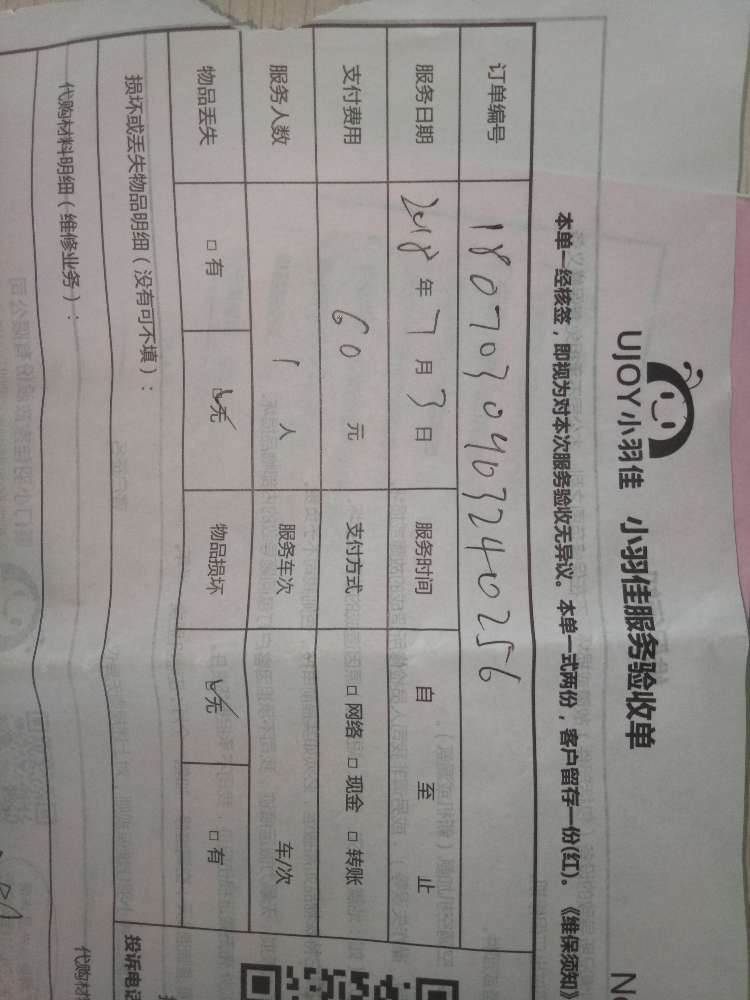 UJOY小羽佳 小羽佳服务验收单
N
本单一经核签，即视为对本次服务验收无异议。本单一式两份，客户留存一份(红)。《维保须知》
订单编号 1807030903240256
服务日期 2018 年 7 月 3 日 服务时间 自 至 止
支付费用 60 元 支付方式 □ 网络 □ 现金 □ 转账
服务人数 1 人 服务车次 车/次
物品丢失 □ 有 □ 无 物品损坏 □ 无 □ 有
损坏或丢失物品明细（没有可不填）： 投诉电话
代购材料明细（维修业务）： 代购材